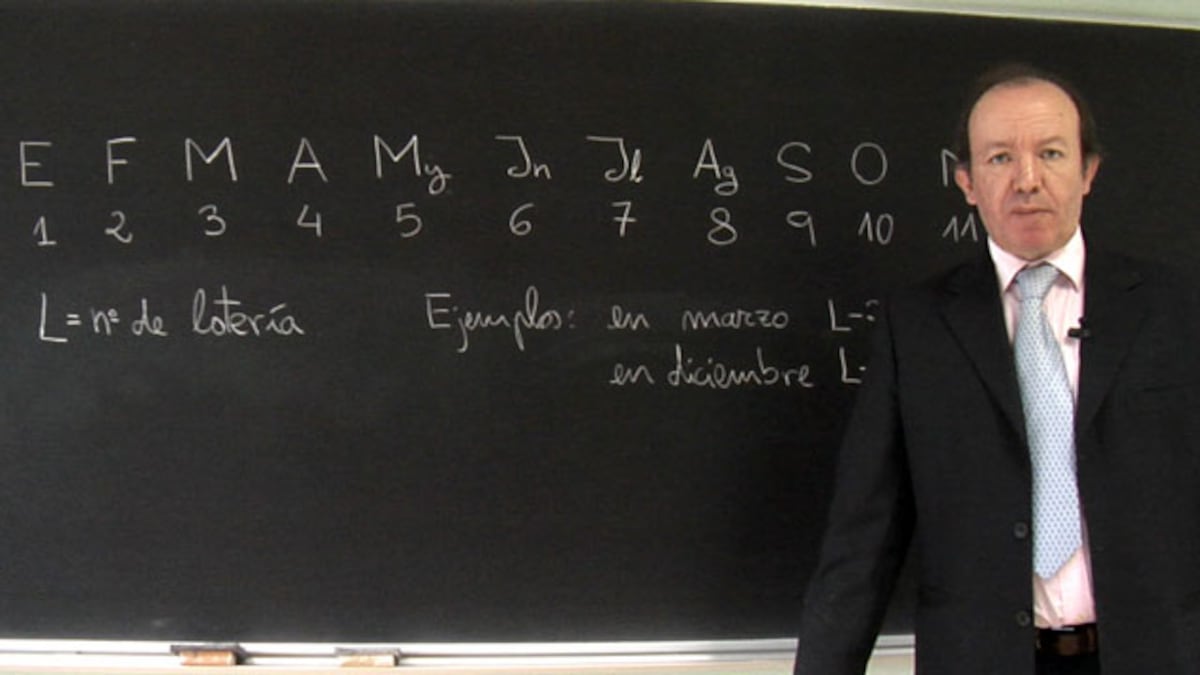 E F M A My Jn Jl Ag S O
1 2 3 4 5 6 7 8 9 10 11
L = nº de lotería
Ejemplos: en marzo L-
en diciembre L-